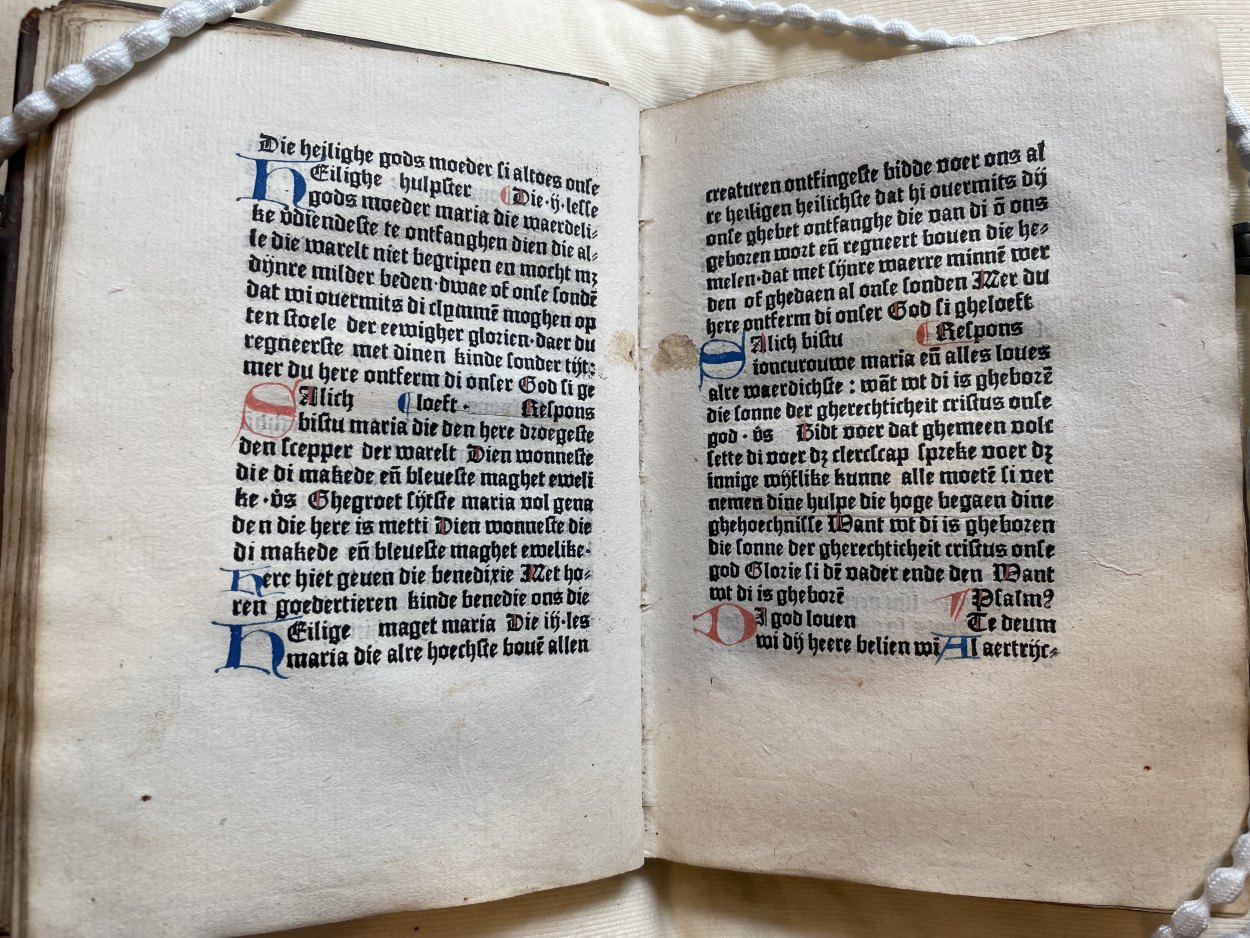 Die heilighe gods moeder si altoes onse
HEilighe hulpster ¶Die·ij·lesse
gods moeder maria die waerdeli⸗
ke v̊diēndeste te ontfanghen dien die al⸗
le die warelt niet begripen en mocht mȝ
dijnre milder beden·dwae of onse sondē
dat wi ouermits di clymmē moghen op
ten stoele der eewigher glorien·daer du
regneerste met dinen kinde sonder tijt⸗
mer du here ontferm di onser God si ge
SAlich ¶loeft· Respons
bistu maria die den here droegeste
den scepper der warelt Dien wonneste
die di makede eñ bleueste maghet eweli
ke·v̊s Ghegroet sijtste maria vol gena
den die here is metti Dien wonneste die
di makede eñ bleueste maghet ewelike·
Herc hiet geuen die benedixie Met ho⸗
ren goedertieren kinde benedie ons die
HEilige maget maria Die iij·les
maria die alre hoechste bouē allen
creaturen ontfingeste bidde voer ons al
re heiligen heilichste dat hi ouermits dij
onse ghebet ontfanghe die van di ō ons
geboren wort eñ regneert bouen die he⸗
melen·dat met sijnre waerre minnē wer
den of ghedaen al onse sonden Mer du
here ontferm di onser God si gheloeft
SAlich bistu ¶Respons
ioncurouwe maria eñ alles loues
alre waerdichste : wāt wt di is gheborē
die sonne der gherechticheit cristus onse
god·v̊s Bidt voer dat ghemeen volc
sette di voer dȝ clercscap spreke voer dȝ
innige wijflike kunne alle moetē si ver
nemen dine hulpe die hoge begaen dine
ghehoechnisse Want wt di is gheboren
die sonne der gherechticheit cristus onse
god Glorie si dē vader ende den Want
wt di is gheborē ¶Psalmꝰ
DI god louen Te deum
wi dij heere belien wi Al aertrijc⸗